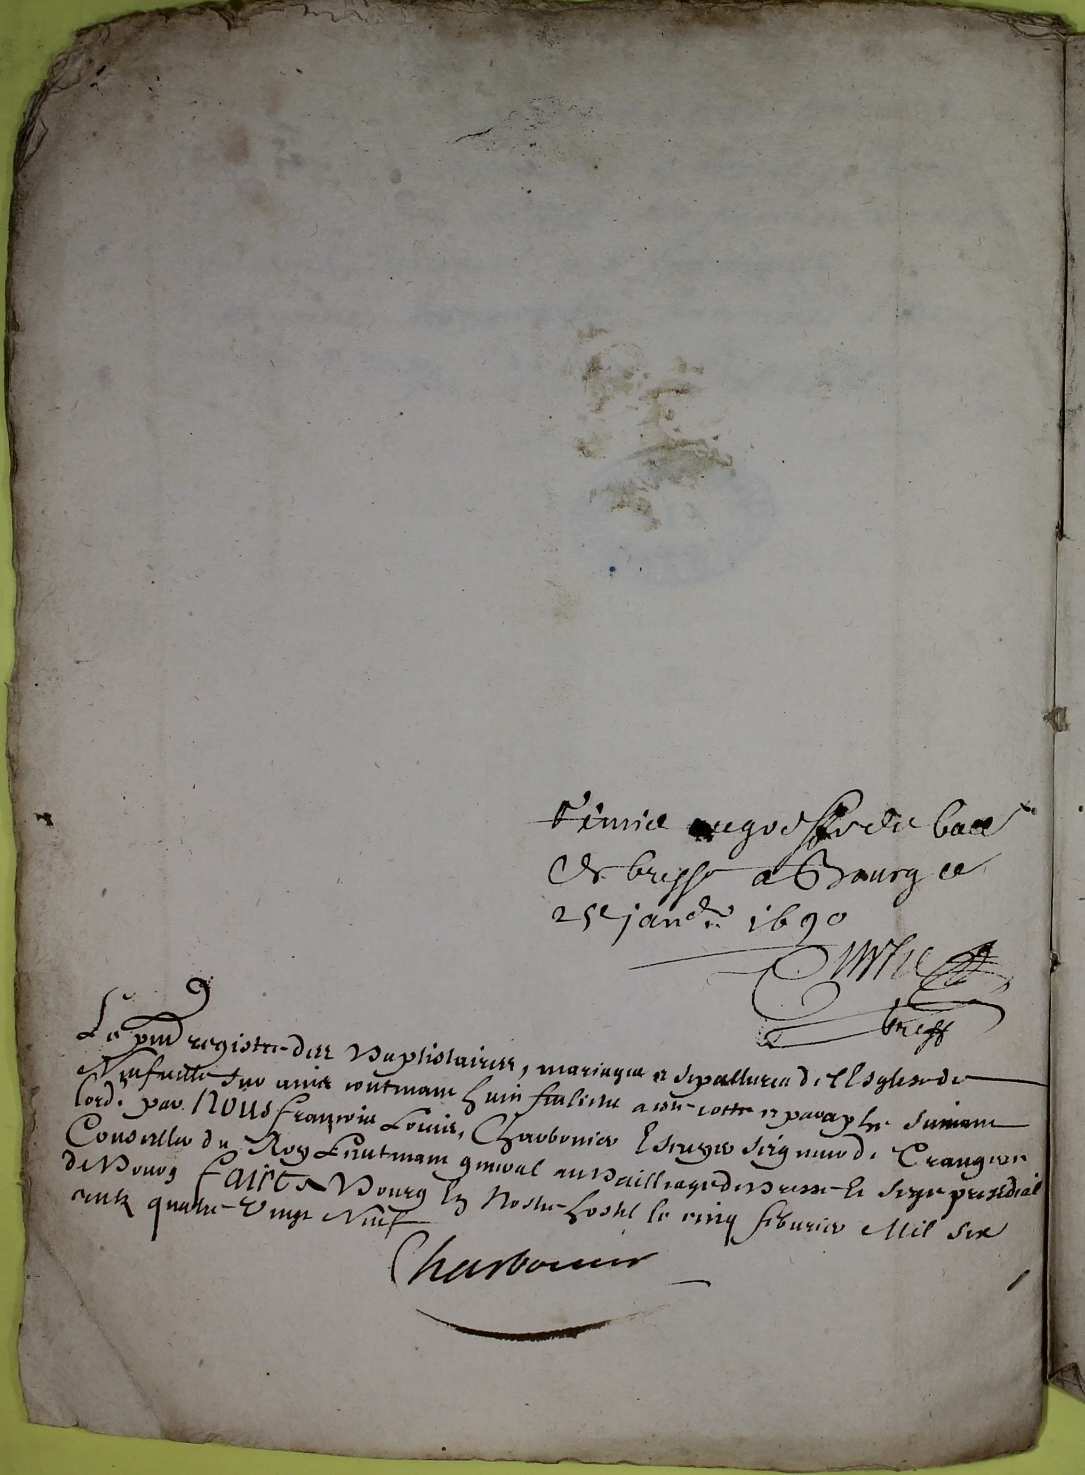 Remis au greffe du bail
de bresse a Bourg ce
25e janer 1690
bress
Le pnt registre des Baptistaires, mariages et sepultures de l'Esglise de
Neufville sur contenant huict feulietz a esté cotté et paraphé suivant
lord. par Nous François Louis, Charbonier Escuyer Seigneur de Crangeon
Conseiller du Roy Lieutenant general au Bailliage de Bresse et siege presidial
de Bourg Faict a Bourg En Nostre hostel le cinq febvrier Mil six
cents quatre Vingt Neuf
Charbonnier